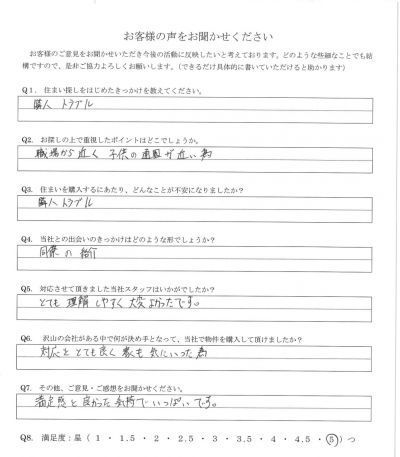 お客様の声をお聞かせください
お客様のご意見をお聞かせいただき今後の活動に反映したいと考えております。どのような些細なことでも結
構ですので、是非ご協力よろしくお願いします。（できるだけ具体的に書いていただけると助かります）
Q1. 住まい探しをはじめたきっかけを教えてください。
隣人トラブル
Q2. お探しの上で重視したポイントはどこでしょうか。
職場から近く 子供の通園が近い為
Q3. 住まいを購入するにあたり、どんなことが不安になりましたか？
隣人トラブル
Q4. 当社との出会いのきっかけはどのような形でしょうか？
同僚の紹介
Q5. 対応させて頂きました当社スタッフはいかがでしたか？
とても理解しやすく大変よかったです。
Q6. 沢山の会社がある中で何が決め手となって、当社で物件を購入して頂けましたか？
対応もとても良く家も気にいった為
Q7. その他、ご意見・ご感想をお聞かせください。
満足感と良かった気持でいっぱいです。
Q8. 満足度：星（ 1 ・ 1.5 ・ 2 ・ 2.5 ・ 3 ・ 3.5 ・ 4 ・ 4.5 ・ 5 ）つ